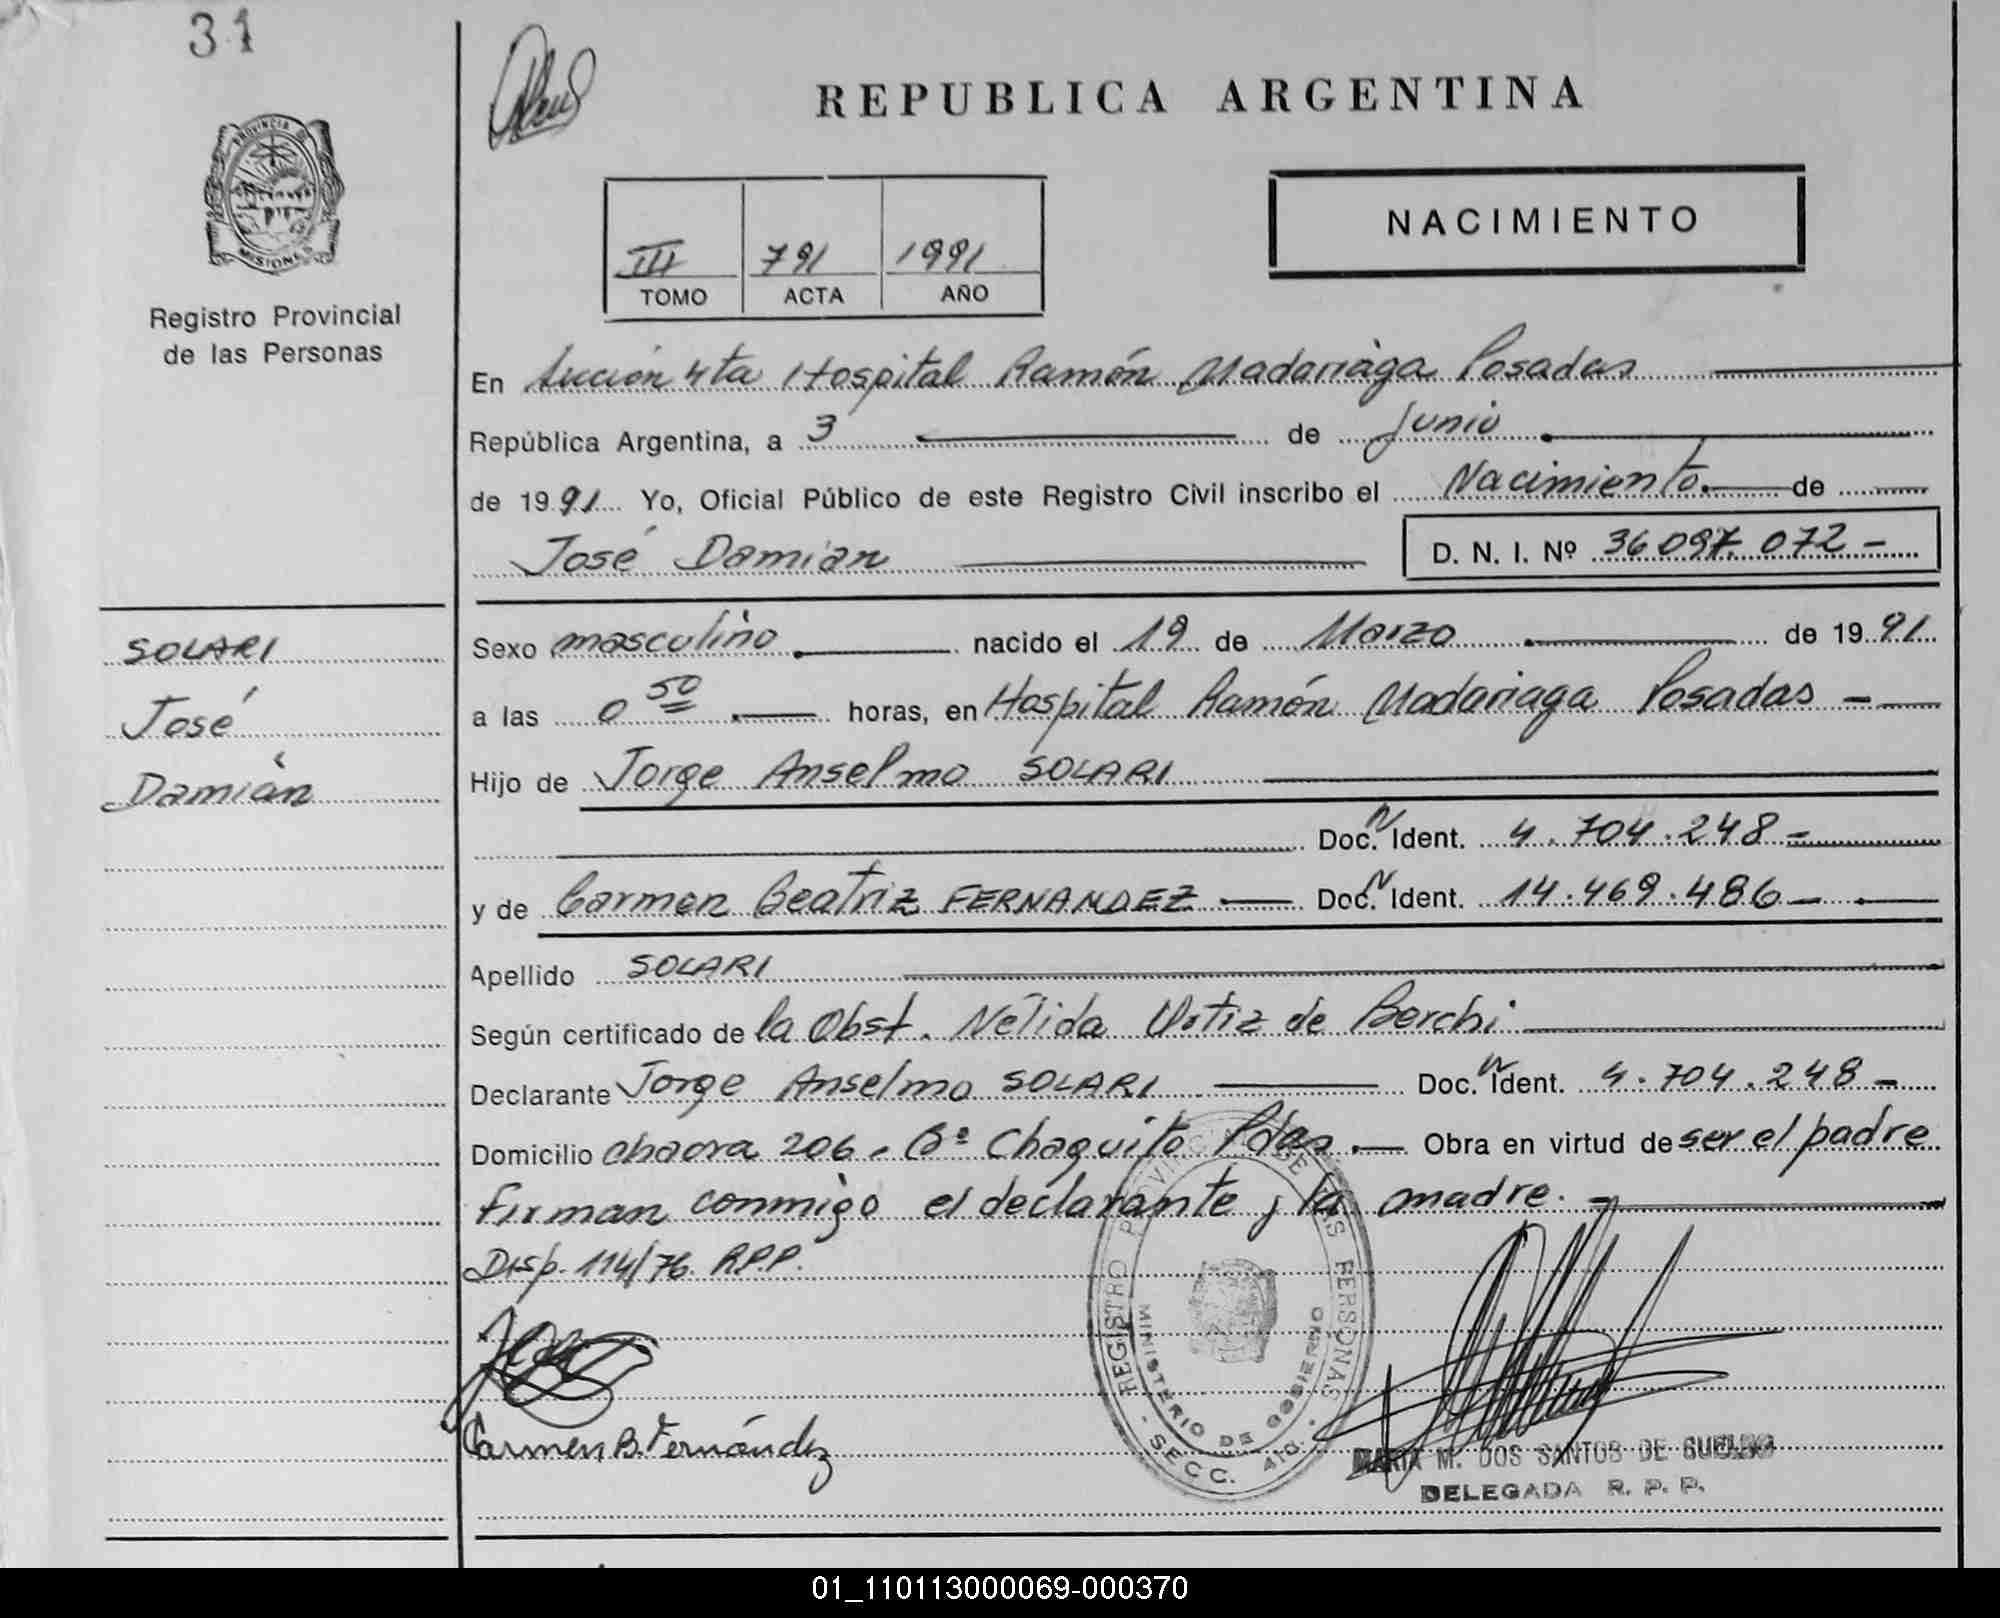 31
REPUBLICA ARGENTINA
PROVINCIA DE
MISIONES
Registro Provincial
de las Personas
III 791 1991
TOMO ACTA AÑO
NACIMIENTO
En Sección 4ta Hospital Ramón Madariaga Posadas
República Argentina, a 3 de Junio
de 1991 Yo, Oficial Público de este Registro Civil inscribo el Nacimiento. de
José Damian D. N. I. Nº 36 097. 072 -
SOLARI
José
Damián
Sexo masculino. nacido el 19 de Marzo . de 19 91
a las 0 50 . horas, en Hospital Ramón Madariaga Posadas -
Hijo de Jorge Anselmo SOLARI
Doc. N Ident. 4.704.248 =
y de Carmen Beatriz FERNANDEZ Doc. N Ident. 14.469.486 -
Apellido SOLARI
Según certificado de la Obst. Nélida Ortiz de Berchi
Declarante Jorge Anselmo SOLARI Doc. N Ident. 4.704.248 -
Domicilio chacra 206. Bº Chaquito Pdas. Obra en virtud de ser el padre
Firman conmigo el declarante y la madre. -
Disp. 114/76. R.P.P.
REGISTRO PROVINCIAL DE LAS PERSONAS
MINISTERIO DE GOBIERNO
- SECC. 4TA. -
Carmen B. Fernández
MARIA M. DOS SANTOS DE
DELEGADA R. P. P.
01_110113000069-000370